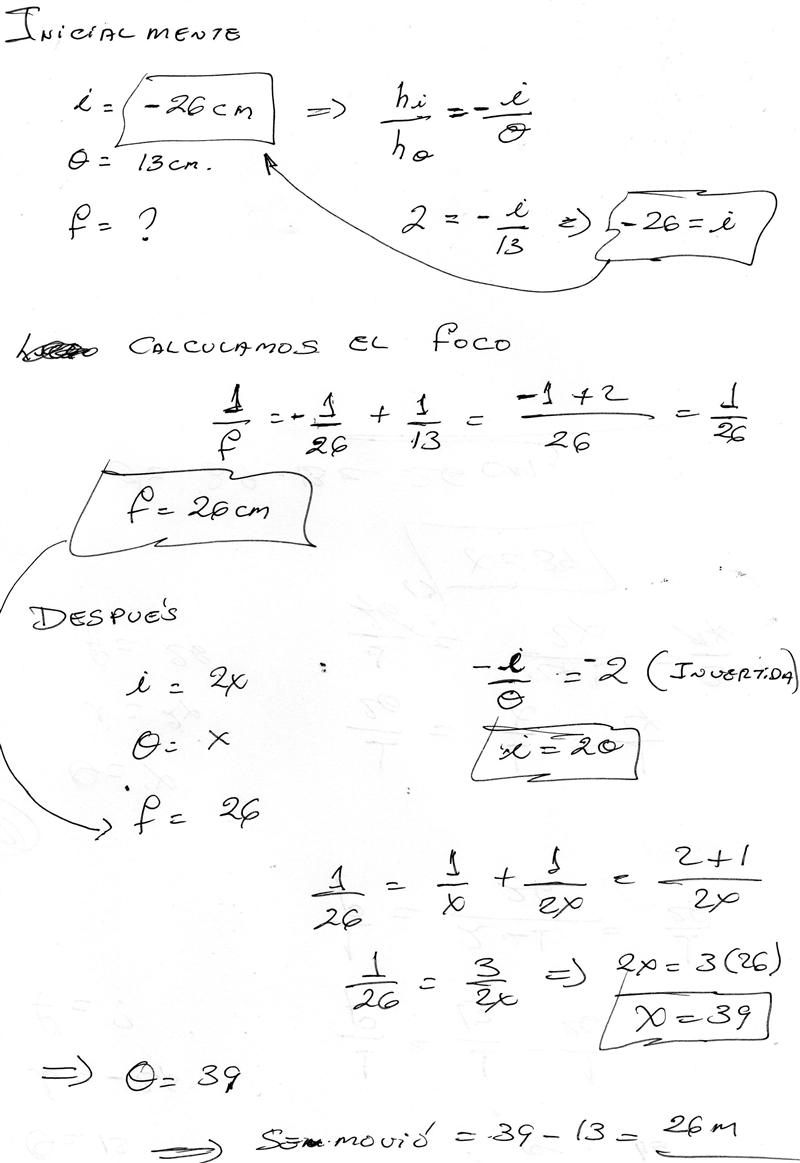 INICIALMENTE
i = -26 cm => hi/ho = - i/o
o = 13 cm.
f = ?
2 = - i/13 => -26 = i
CALCULAMOS EL FOCO
1/f = - 1/26 + 1/13 = (-1+2)/26 = 1/26
f = 26 cm
DESPUÉS
i = 2x
-i/o = -2 (INVERTIDA)
o = x
i = 2o
f = 26
1/26 = 1/x + 1/2x = (2+1)/2x
1/26 = 3/2x => 2x = 3(26)
x = 39
=> o = 39
=> SE MOVIÓ = 39 - 13 = 26 m